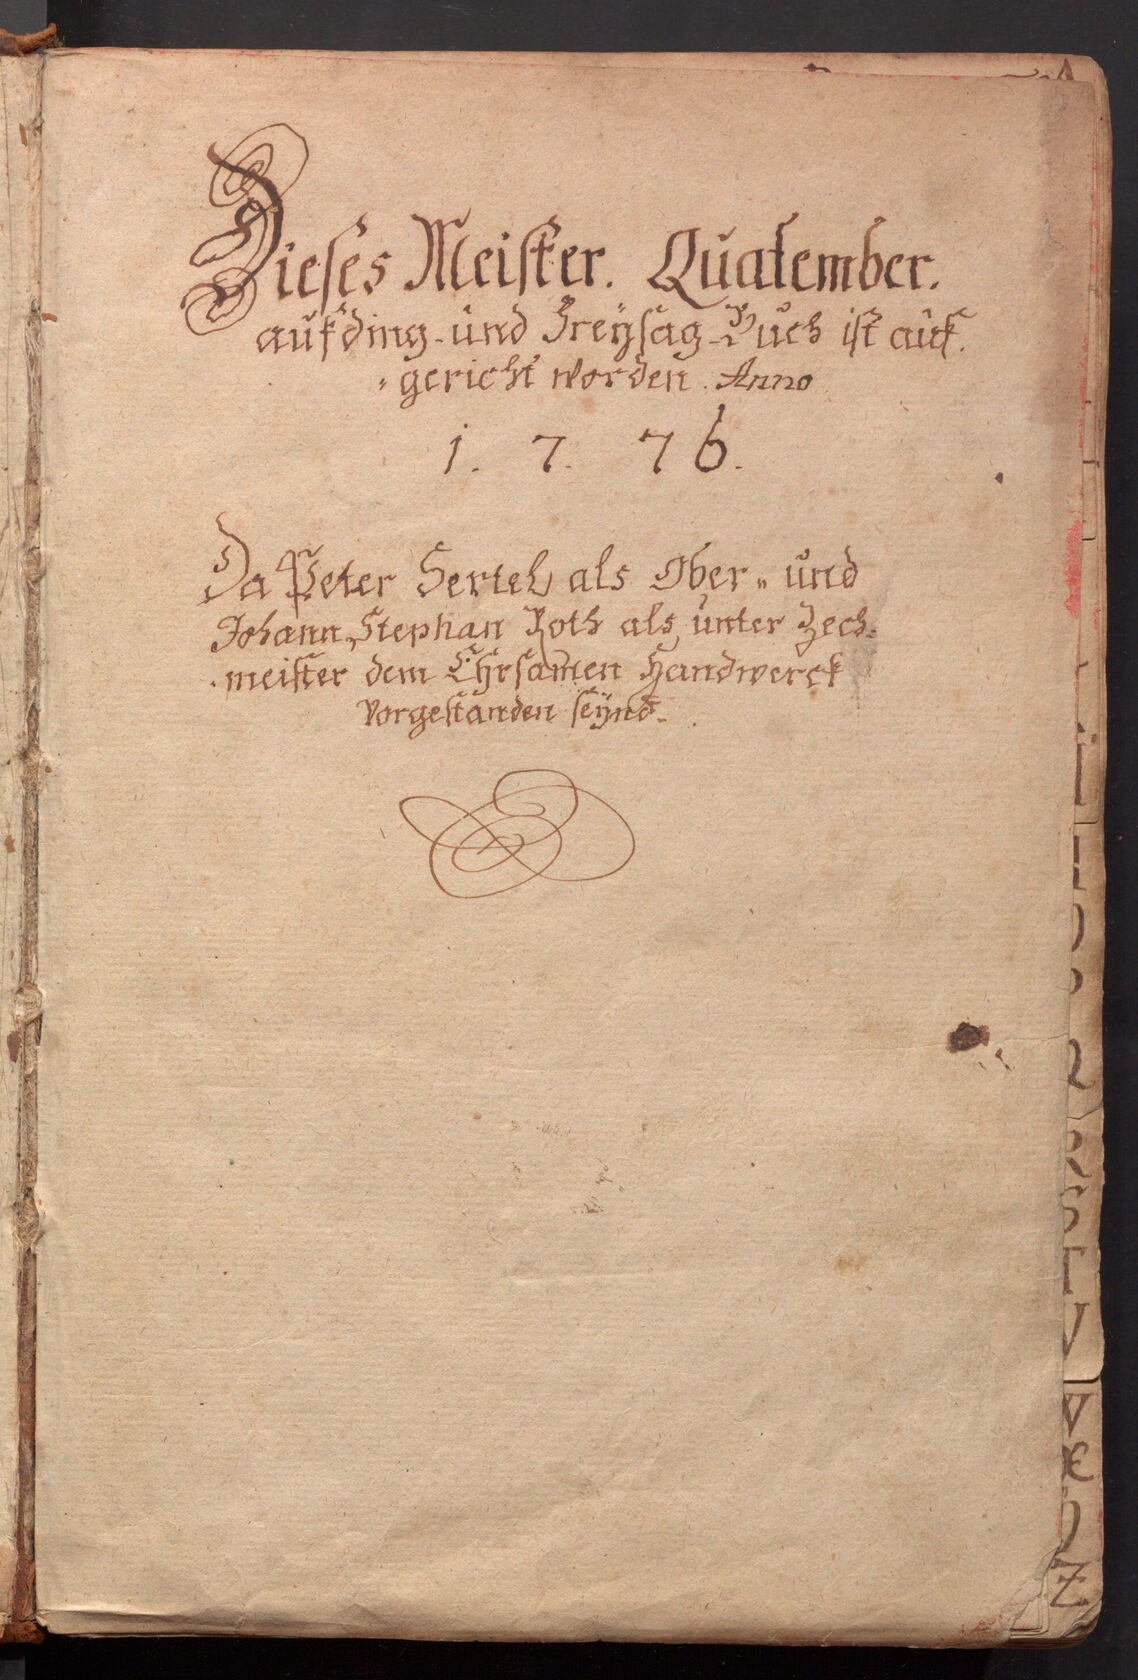 Dieses Meister. Quatember.
aufding- und Freÿsag-Buch ist auf.
"gericht worden. Anno
1. 7. 76.
Da Peter Hertel als Ober" und
Johann Stephan Roth als unter Zech-
meister dem Ehrsamen Handwerck
vorgestanden seÿnd.
V
W
Z